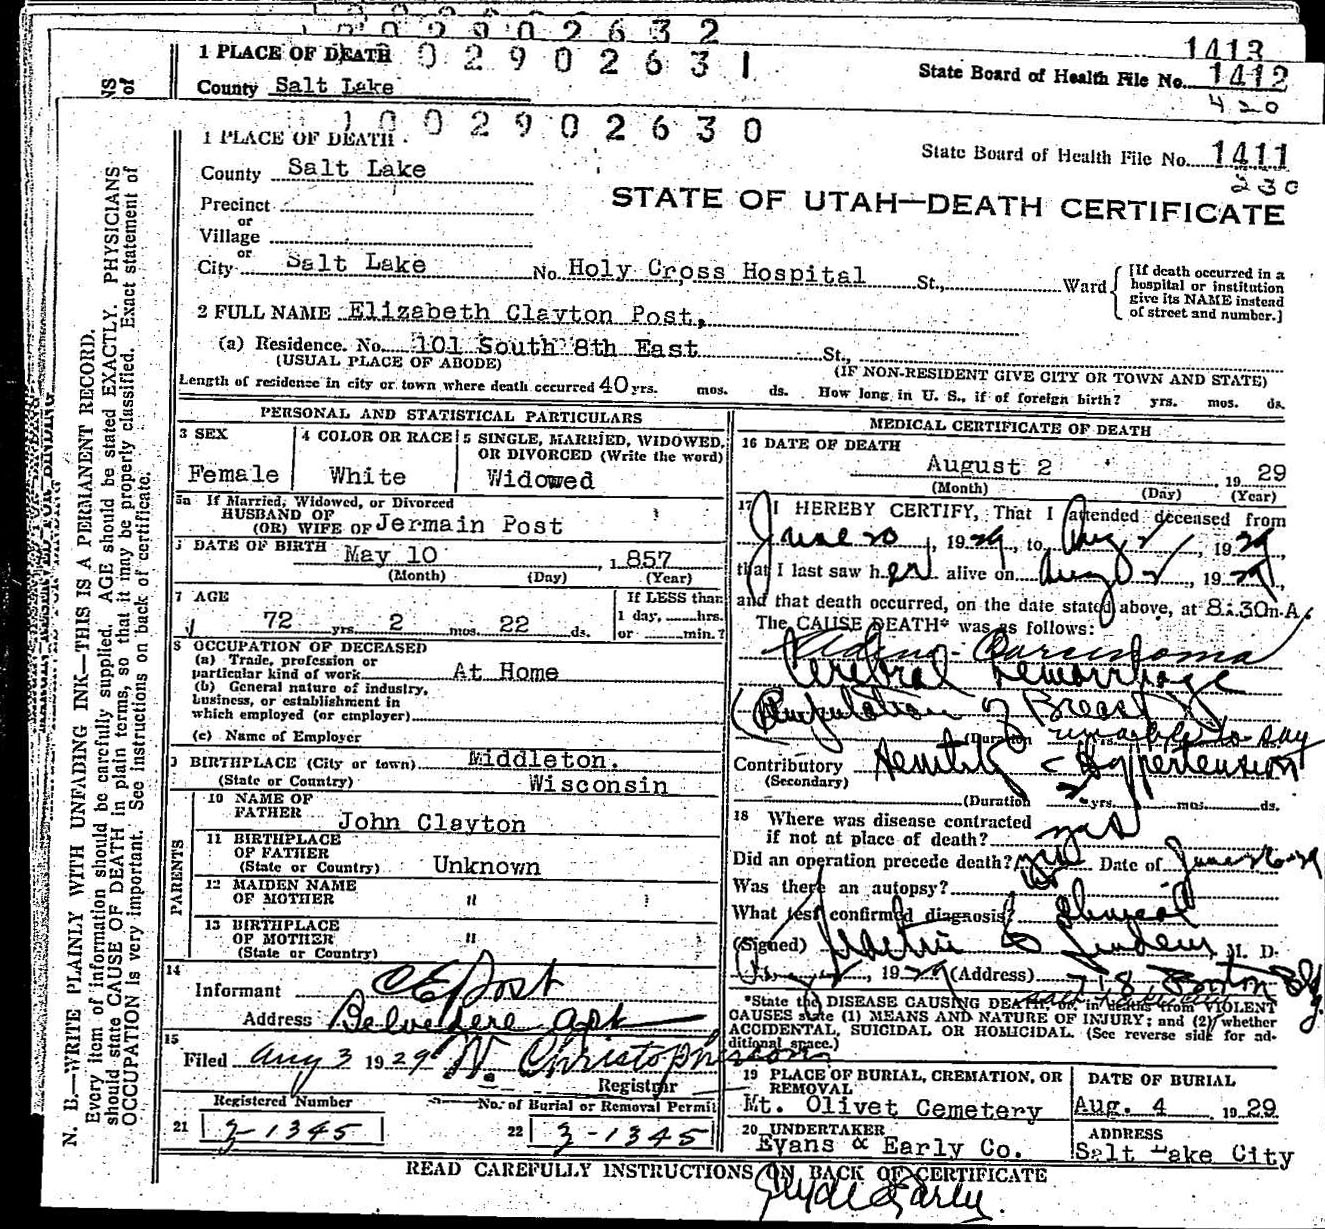 0 0 2 9 0 2 6 3 2
1413
1 PLACE OF DEATH 0 2 9 0 2 6 3 1
State Board of Health File No. 1412
County Salt Lake
420
1 0 0 2 9 0 2 6 3 0
1 PLACE OF DEATH
State Board of Health File No. 1411
230
County Salt Lake
STATE OF UTAH—DEATH CERTIFICATE
Precinct
or
Village
or
City Salt Lake No. Holy Cross Hospital St., Ward
[If death occurred in a
hospital or institution
give its NAME instead
of street and number.]
2 FULL NAME Elizabeth Clayton Post,
(a) Residence. No. 101 South 8th East St.,
(USUAL PLACE OF ABODE) (IF NON-RESIDENT GIVE CITY OR TOWN AND STATE)
Length of residence in city or town where death occurred 40 yrs. mos. ds. How long in U. S., if of foreign birth? yrs. mos. ds.
PERSONAL AND STATISTICAL PARTICULARS
3 SEX
Female
4 COLOR OR RACE
White
5 SINGLE, MARRIED, WIDOWED,
OR DIVORCED (Write the word)
Widowed
5a If Married, Widowed, or Divorced
HUSBAND OF
(OR) WIFE OF Jermain Post
DATE OF BIRTH May 10, 1857
(Month) (Day) (Year)
7 AGE
72 yrs. 2 mos. 22 ds.
If LESS than
1 day, hrs.
or min.?
8 OCCUPATION OF DECEASED
(a) Trade, profession or
particular kind of work At Home
(b) General nature of industry,
business, or establishment in
which employed (or employer)
(c) Name of Employer
9 BIRTHPLACE (City or town) Middleton.
(State or Country) Wisconsin
PARENTS
10 NAME OF
FATHER John Clayton
11 BIRTHPLACE
OF FATHER
(State or Country) Unknown
12 MAIDEN NAME
OF MOTHER "
13 BIRTHPLACE
OF MOTHER "
(State or Country)
14
Informant C E Post
Address Belvedere Apt
15
Filed Aug 3 1929 W. Christopherson
Registrar
Registered Number
21 3-1345
No. of Burial or Removal Permit
22 3-1345
MEDICAL CERTIFICATE OF DEATH
16 DATE OF DEATH
August 2 1929
(Month) (Day) (Year)
17 I HEREBY CERTIFY, That I attended deceased from
June 20, 1929, to Aug 2, 1929,
that I last saw her alive on Aug 2, 1929,
and that death occurred, on the date stated above, at 8:30m A.
The CAUSE DEATH* was as follows:
Carcinoma
Cerebral Hemorrhage
(Amputation of Breast)
(Duration unable to say
Contributory Hypertension
(Secondary)
(Duration yrs. mos. ds.
18 Where was disease contracted
if not at place of death?
Did an operation precede death? Yes Date of June
Was there an autopsy?
What test confirmed diagnosis?
(Signed) M. D.
, 1929 (Address) Boston Bldg.
*State the DISEASE CAUSING DEATH, or, in deaths from VIOLENT
CAUSES state (1) MEANS AND NATURE OF INJURY; and (2) whether
ACCIDENTAL, SUICIDAL OR HOMICIDAL. (See reverse side for ad-
ditional space.)
19 PLACE OF BURIAL, CREMATION, OR
REMOVAL
Mt. Olivet Cemetery
DATE OF BURIAL
Aug. 4 1929
20 UNDERTAKER
Evans & Early Co.
ADDRESS
Salt Lake City
READ CAREFULLY INSTRUCTIONS ON BACK OF CERTIFICATE
N. B.—WRITE PLAINLY WITH UNFADING INK—THIS IS A PERMANENT RECORD.
Every item of information should be carefully supplied. AGE should be stated EXACTLY. PHYSICIANS
should state CAUSE OF DEATH in plain terms, so that it may be properly classified. Exact statement of
OCCUPATION is very important. See instructions on back of certificate.